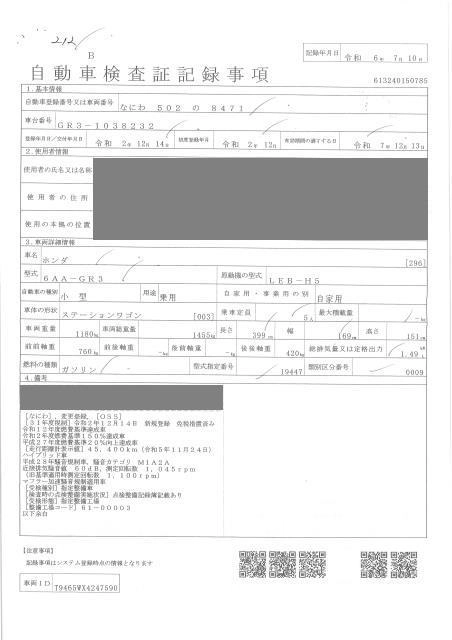 212
B
記録年月日 令和 6年 7月 10日
自動車検査証記録事項
613240150785
1.基本情報
自動車登録番号又は車両番号 なにわ 502 の 8471
車台番号 GR3-1038232
登録年月日/交付年月日 令和 2年 12月 14日 初度登録年月 令和 2年 12月 有効期間の満了する日 令和 7年 12月 13日
2.使用者情報
使用者の氏名又は名称
使用者の住所
使用の本拠の位置
3.車両詳細情報
車名 ホンダ [296]
型式 6AA-GR3 原動機の型式 LEB-H5
自動車の種別 小型 用途 乗用 自家用・事業用の別 自家用
車体の形状 ステーションワゴン [003] 乗車定員 5人 最大積載量 -kg
車両重量 1180kg 車両総重量 1455kg 長さ 399cm 幅 169cm 高さ 151cm
前前軸重 760kg 前後軸重 -kg 後前軸重 -kg 後後軸重 420kg 総排気量又は定格出力 1.49 L
燃料の種類 ガソリン 型式指定番号 19447 類別区分番号 0009
4.備考
[なにわ],変更登録,[OSS]
[31年度税制]令和2年12月14日 新規登録 免税措置済み
令和12年度燃費基準達成車
令和2年度燃費基準150%達成車
平成27年度燃費基準20%向上達成車
[走行距離計表示値]45,400km(令和5年11月24日)
ハイブリッド車
平成28年騒音規制車,騒音カテゴリ M1A2A
近接排気騒音値 60dB,測定回転数 1,045rpm
(旧基準適用時測定回転数 1,100rpm)
マフラー加速騒音規制適用車
[受検種別]指定整備車
[検査時の点検整備実施状況]点検整備記録簿記載あり
[受検形態]指定整備工場
[整備工場コード]61-00003
以下余白
【注意事項】
記録事項はシステム登録時点の情報となります
車両ID T9465WX4247590